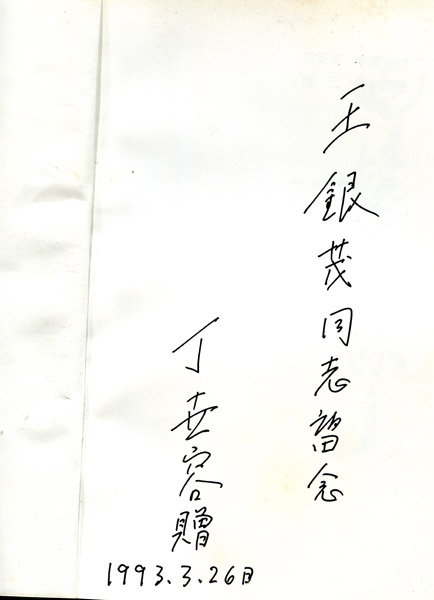 王銀茂同志留念
丁世容贈
1993.3.26日